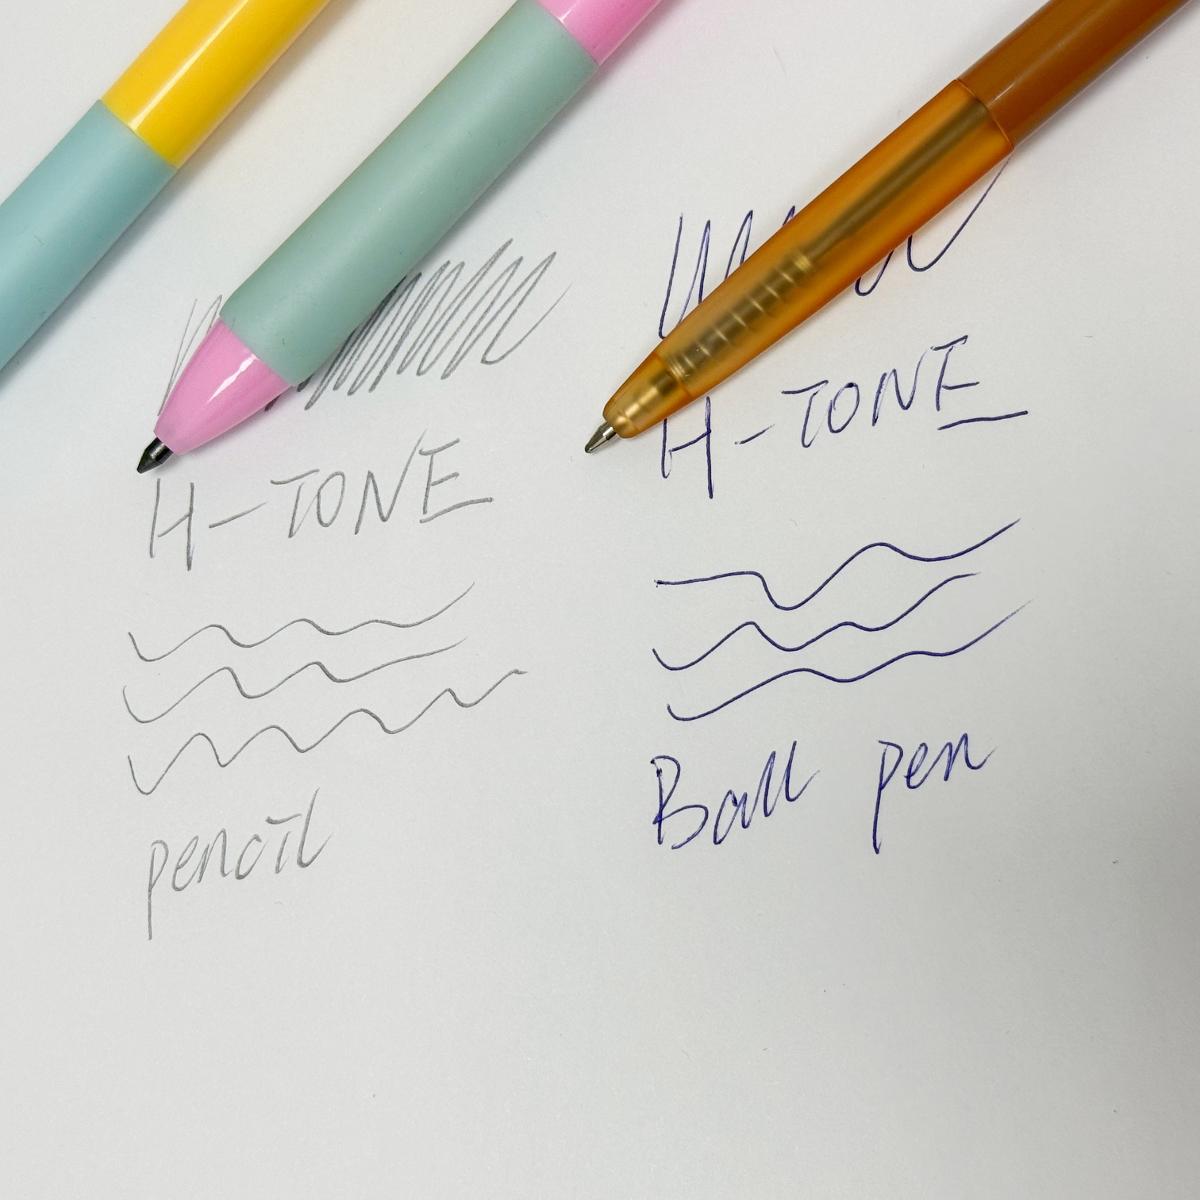 H-TONE
pencil
H-TONE
Ball pen